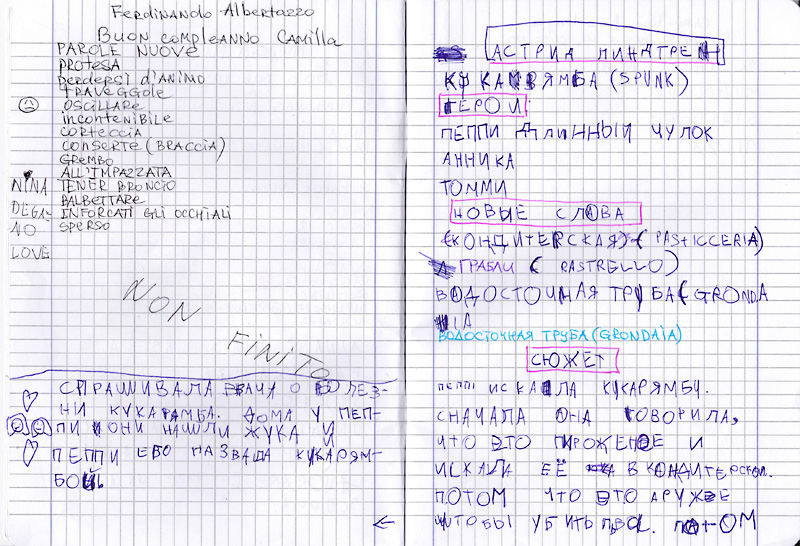 Ferdinando Albertazzo
Buon compleanno Camilla
PAROLE NUOVE
PROTESA
perdersi d'animo
TRAVEGGOLE
OSCILLARE
incontenibile
CORTECCIA
CONSERTE (BRACCIA)
GREMBO
ALL'IMPAZZATA
NINA TENER BRONCIO
BALBETTARE
DEGA- INFORCATI GLI OCCHIALI
NO SPERSO
LOVE
NON
FINITO
СПРАШИВАЛА ВРАЧА О БОЛЕЗ-
НИ КУКАРАМБА. ДОМА У ПЕП-
ПИ ОНИ НАШЛИ ЖУКА И
ПЕППИ ЕГО НАЗВАЛА КУКАРЯМ-
БОЙ.
АСТРИД ЛИНДГРЕН
КУКАРЯМБА (SPUNK)
ГЕРОИ
ПЕППИ ДЛИННЫЙ ЧУЛОК
АННИКА
ТОММИ
НОВЫЕ СЛОВА
(КОНДИТЕРСКАЯ)-(PASTICCERIA)
ГРАБЛИ (RASTRELLO)
ВОДОСТОЧНАЯ ТРУБА (GRONDA
IA
ВОДОСТОЧНАЯ ТРУБА (GRONDAIA)
СЮЖЕТ
ПЕППИ ИСКАЛА КУКАРЯМБУ.
СНАЧАЛА ОНА ГОВОРИЛА,
ЧТО ЭТО ПИРОЖЕНОЕ И
ИСКАЛА ЕЁ В КОНДИТЕРСКОЙ.
ПОТОМ ЧТО ЭТО АРУЖЕ
ЧТОБЫ УБИТЬ ЛВА. ПАТОМ